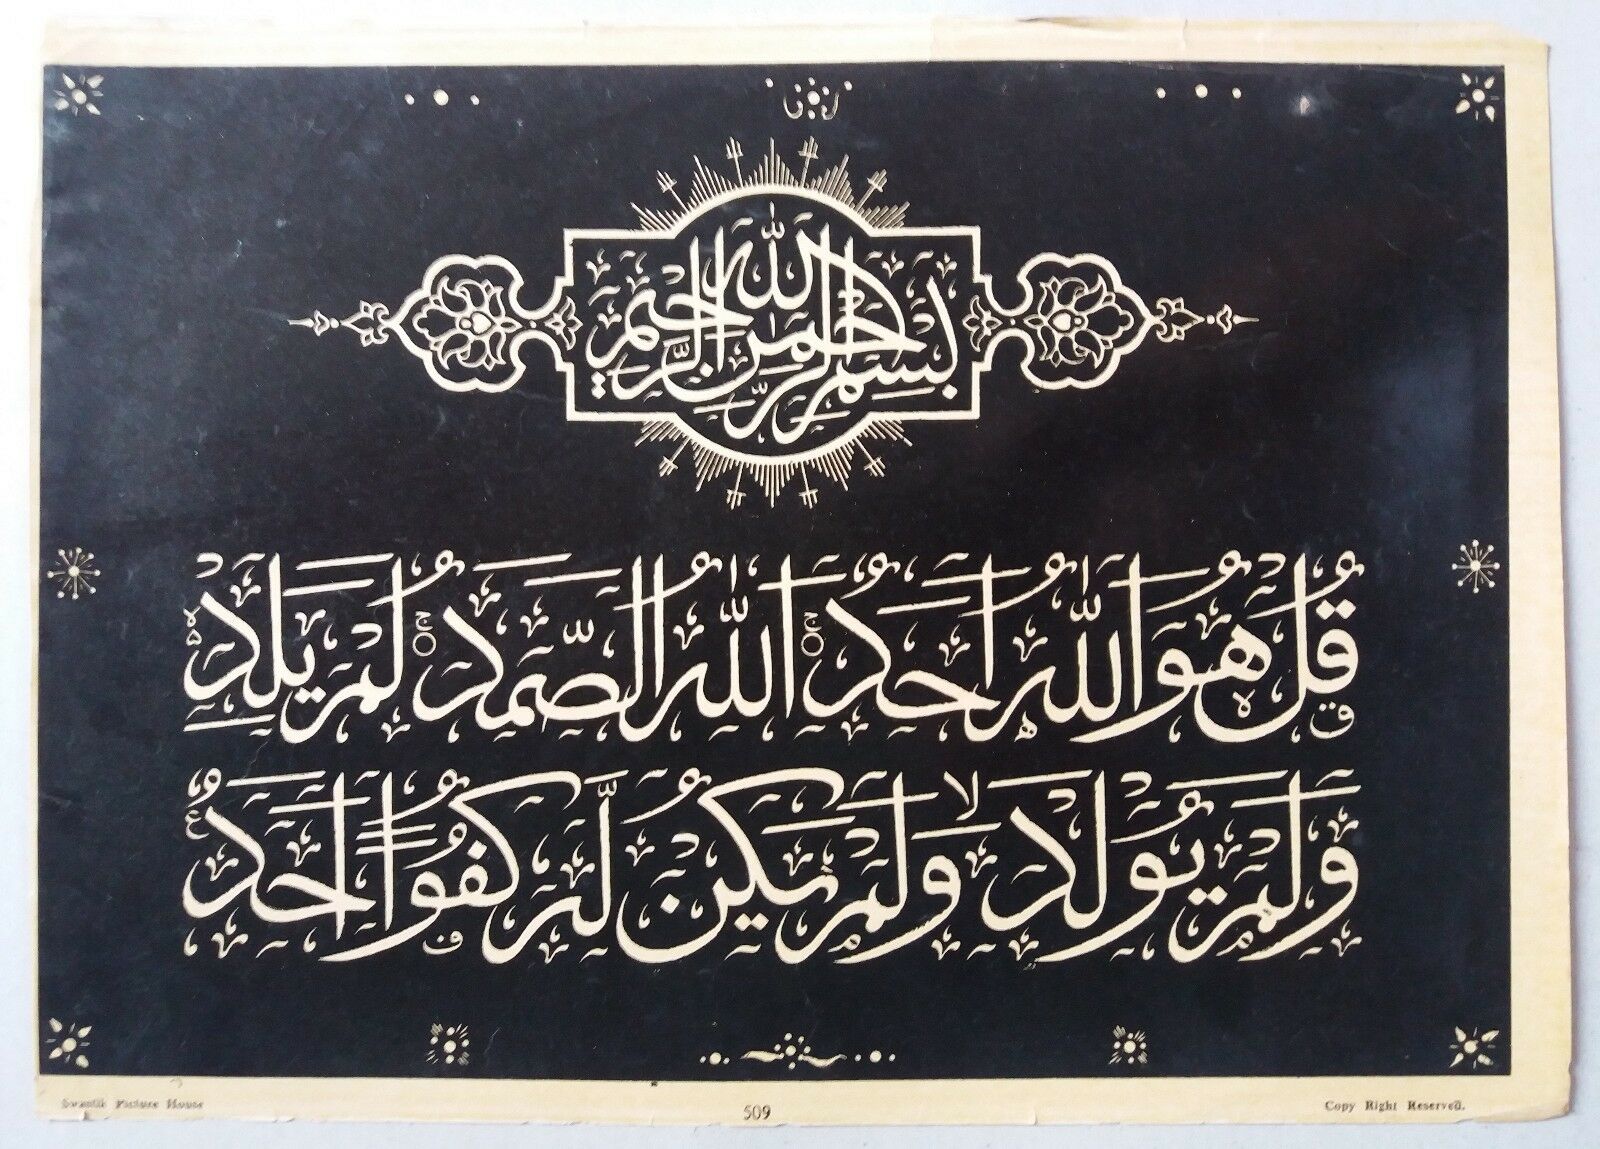 بِسْمِ اللهِ الرَّحْمٰنِ الرَّحِيْمِ
قُلْ هُوَ اللّٰهُ اَحَدٌ ۚ اَللّٰهُ الصَّمَدُ ۚ لَمْ يَلِدْ ۙ
وَلَمْ يُوْلَدْ ۙ وَلَمْ يَكُنْ لَّهٗ كُفُوًا اَحَدٌ ۧ
Swastik Picture House
509
Copy Right Reserved.